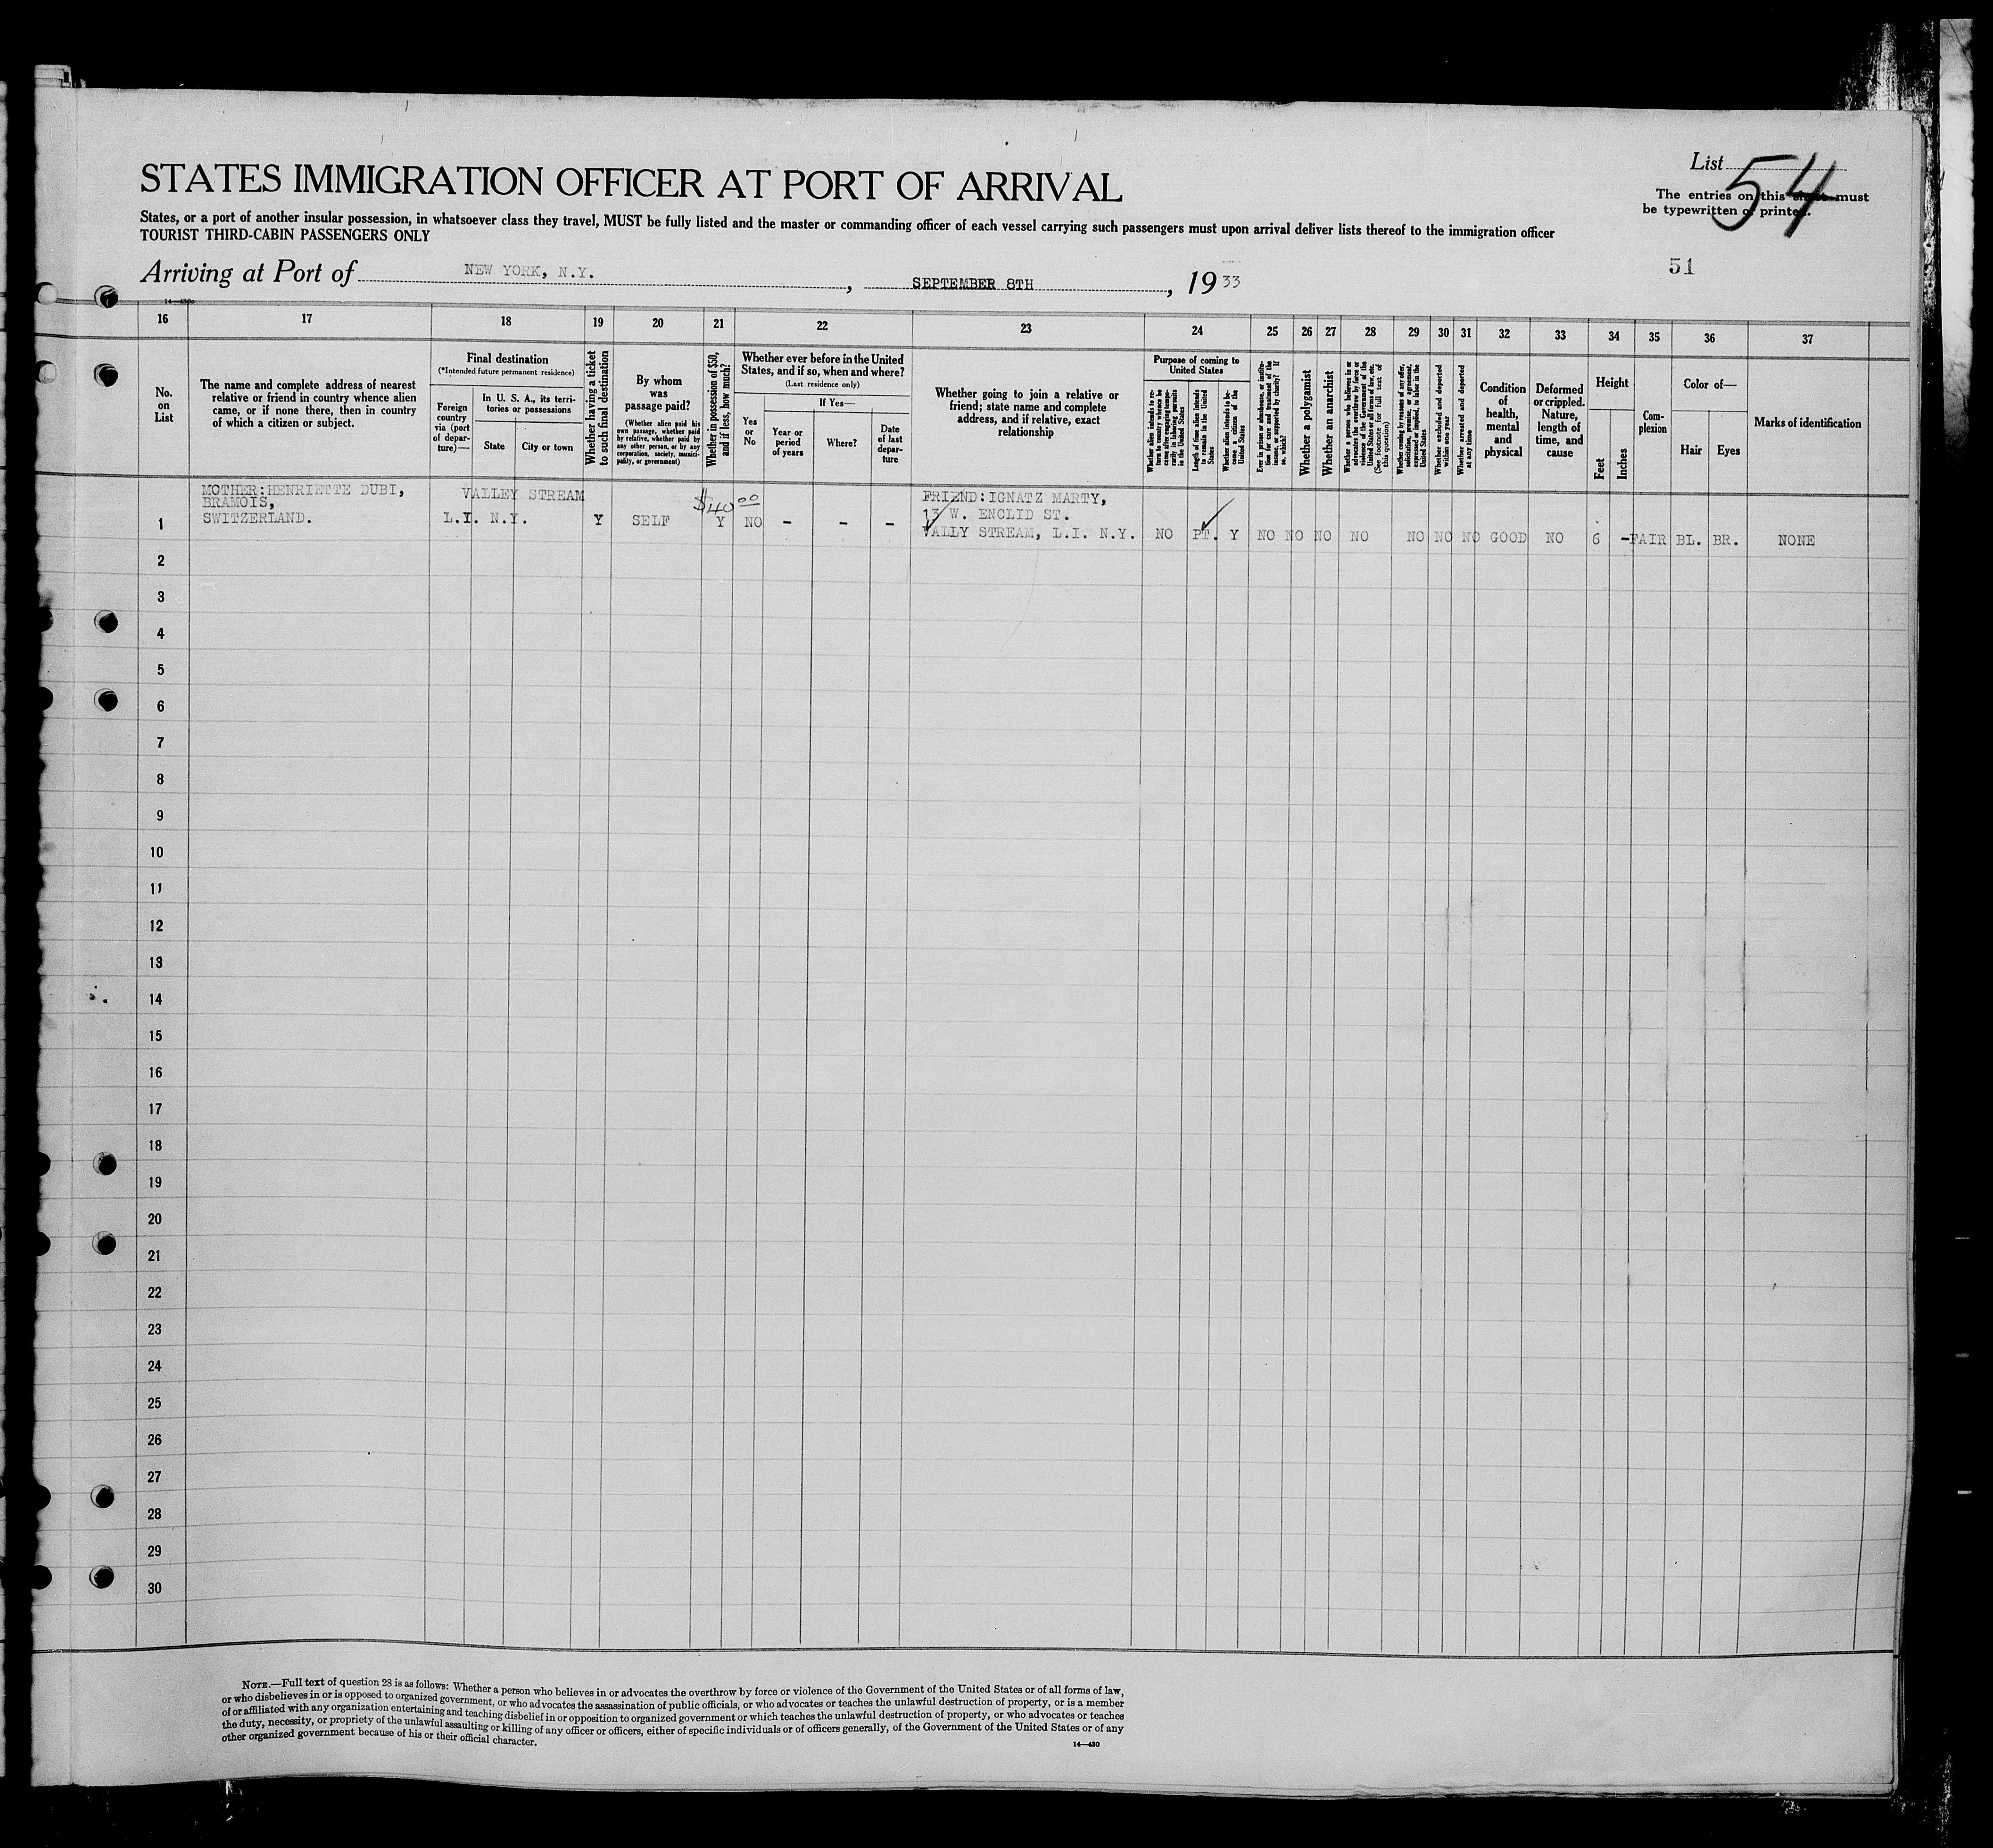 STATES IMMIGRATION OFFICER AT PORT OF ARRIVAL
List 54
The entries on this sheet must
be typewritten or printed.
States, or a port of another insular possession, in whatsoever class they travel, MUST be fully listed and the master or commanding officer of each vessel carrying such passengers must upon arrival deliver lists thereof to the immigration officer
TOURIST THIRD-CABIN PASSENGERS ONLY
51
Arriving at Port of NEW YORK, N.Y., SEPTEMBER 8TH, 1933
14—430
16 17 18 19 20 21 22 23 24 25 26 27 28 29 30 31 32 33 34 35 36 37
No.
on
List
The name and complete address of nearest
relative or friend in country whence alien
came, or if none there, then in country
of which a citizen or subject.
Final destination
(*Intended future permanent residence)
Foreign
country
via (port
of depar-
ture)—
In U. S. A., its terri-
tories or possessions
State
City or town
Whether having a ticket
to such final destination
By whom
was
passage paid?
(Whether alien paid his
own passage, whether paid
by relative, whether paid by
any other person, or by any
corporation, society, munici-
pality, or government)
Whether in possession of $50,
and if less, how much?
Whether ever before in the United
States, and if so, when and where?
(Last residence only)
Yes
or
No
If Yes—
Year or
period
of years
Where?
Date
of last
depar-
ture
Whether going to join a relative or
friend; state name and complete
address, and if relative, exact
relationship
Purpose of coming to
United States
Whether alien intends to re-
turn to country whence he
came after engaging tempo-
rarily in laboring pursuits
in the United States
Length of time alien intends
to remain in the United
States
Whether alien intends to be-
come a citizen of the
United States
Ever in prison or almshouse, or institu-
tion for care and treatment of the
insane, or supported by charity? If
so, which?
Whether a polygamist
Whether an anarchist
Whether a person who believes in or
advocates the overthrow by force or
violence of the Government of the
United States or all forms of law, etc.
(See footnote for full text of
this question)
Whether coming by reason of any offer,
solicitation, promise, or agreement,
expressed or implied, to labor in the
United States
Whether excluded and deported
within one year
Whether arrested and deported
at any time
Condition
of
health,
mental
and
physical
Deformed
or crippled.
Nature,
length of
time, and
cause
Height
Feet
Inches
Com-
plexion
Color of—
Hair
Eyes
Marks of identification
MOTHER:HENRIETTE DUBI,
BRAMOIS,
SWITZERLAND.
VALLEY STREAM
L.I. N.Y.
Y
SELF
$40 00
Y
NO
- - -
FRIEND:IGNATZ MARTY,
13 W. ENCLID ST.
VALLY STREAM, L.I. N.Y.
NO PT. Y NO NO NO NO NO NO NO GOOD NO 6 - FAIR BL. BR. NONE
1
2
3
4
5
6
7
8
9
10
11
12
13
14
15
16
17
18
19
20
21
22
23
24
25
26
27
28
29
30
NOTE.—Full text of question 28 is as follows: Whether a person who believes in or advocates the overthrow by force or violence of the Government of the United States or of all forms of law,
or who disbelieves in or is opposed to organized government, or who advocates the assassination of public officials, or who advocates or teaches the unlawful destruction of property, or is a member
of or affiliated with any organization entertaining and teaching disbelief in or opposition to organized government or which teaches the unlawful destruction of property, or who advocates or teaches
the duty, necessity, or propriety of the unlawful assaulting or killing of any officer or officers, either of specific individuals or of officers generally, of the Government of the United States or of any
other organized government because of his or their official character.
14—430